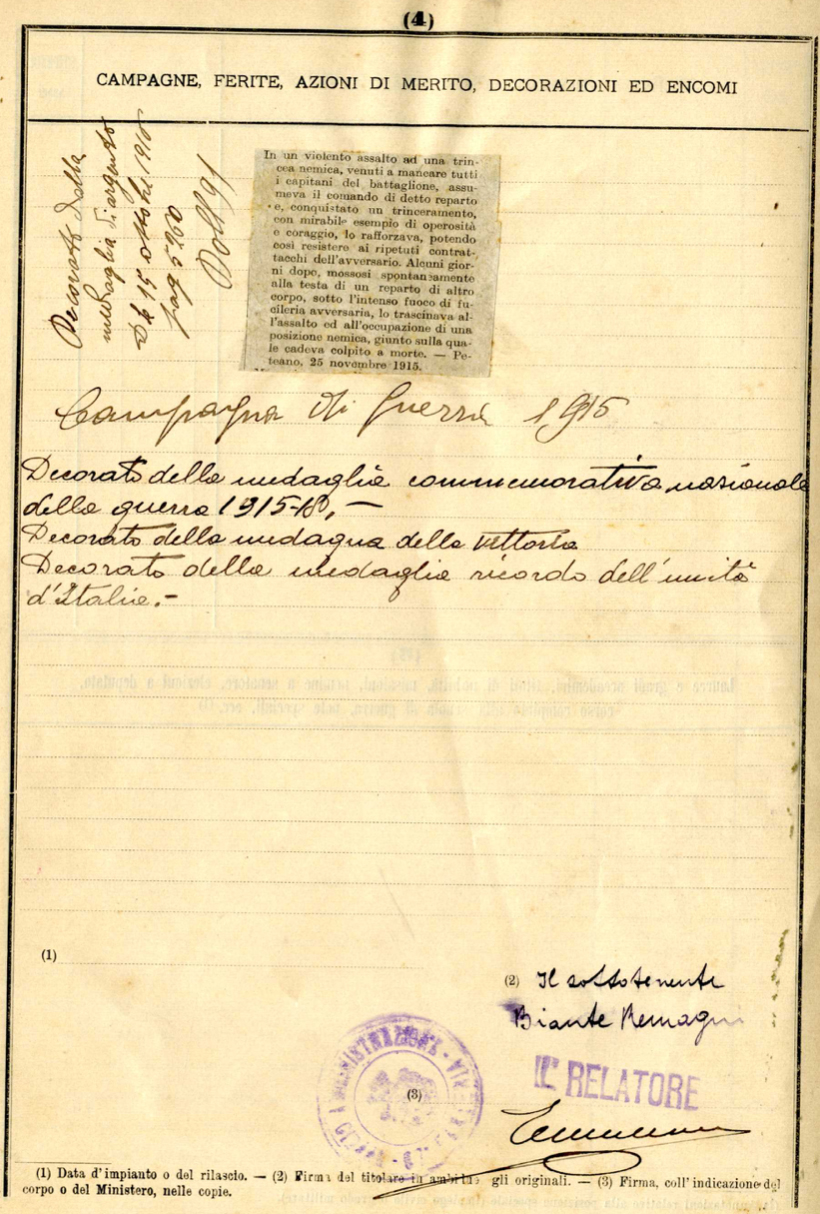 (4)
CAMPAGNE, FERITE, AZIONI DI MERITO, DECORAZIONI ED ENCOMI
Decorato della
medaglia di argento
15 ottobre 1916
pag 5260
In un violento assalto ad una trin-
cea nemica, venuti a mancare tutti
i capitani del battaglione, assu-
meva il comando di detto reparto
e, conquistato un trinceramento,
con mirabile esempio di operosità
e coraggio, lo rafforzava, potendo
così resistere ai ripetuti contrat-
tacchi dell'avversario. Alcuni gior-
ni dopo, mossosi spontaneamente
alla testa di un reparto di altro
corpo, sotto l'intenso fuoco di fu-
cileria avversaria, lo trascinava al-
l'assalto ed all'occupazione di una
posizione nemica, giunto sulla qua-
le cadeva colpito a morte. — Pe-
teano, 25 novembre 1915.
Campagna di guerra 1915
Decorato della medaglia commemorativa nazionale
della guerra 1915-18.—
Decorato della medaglia della vittoria
Decorato della medaglia ricordo dell'unità
d'Italia.-
(1)
(2) Il sottotenente
Biante
IL RELATORE
(3)
(1) Data d'impianto o del rilascio. — (2) Firma del titolare in ambidue gli originali. — (3) Firma, coll'indicazione del
corpo o del Ministero, nelle copie.